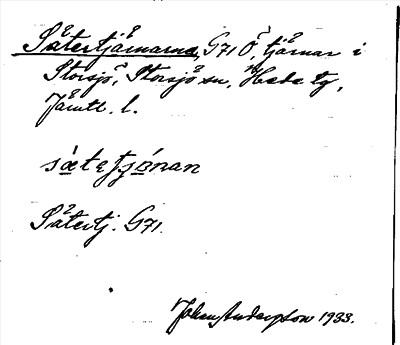 Sätertjärnarna, G71 Ö, tjärnar i
Storsjö, Storsjö sn, Hede tg,
Jämtl. l.
sätetjɷ̀nan
Sätertj. G71.
Johan Anderson 1933.